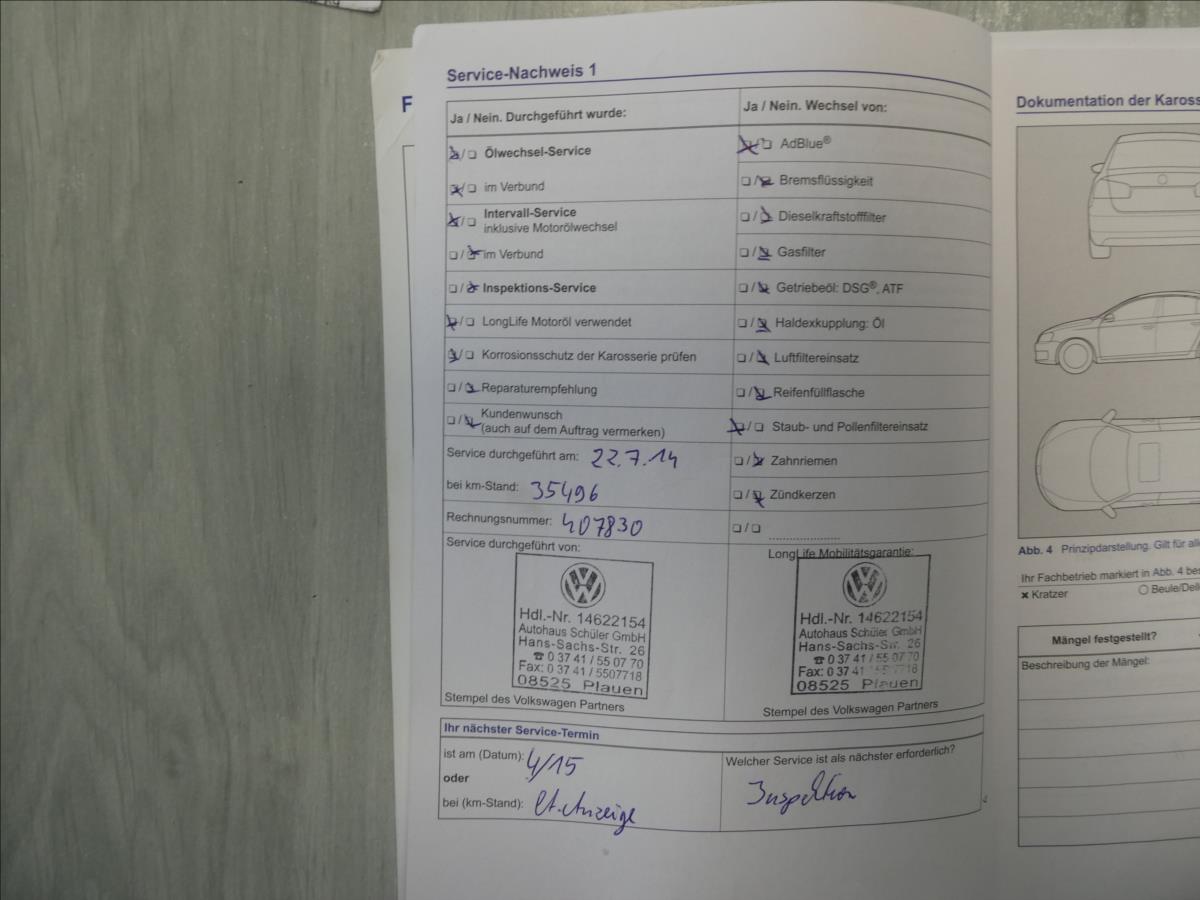 Service-Nachweis 1
Ja / Nein. Durchgeführt wurde:
❏/❏ Ölwechsel-Service
❏/❏ im Verbund
❏/❏ Intervall-Service
inklusive Motorölwechsel
❏/❏ im Verbund
❏/❏ Inspektions-Service
❏/❏ LongLife Motoröl verwendet
❏/❏ Korrosionsschutz der Karosserie prüfen
❏/❏ Reparaturempfehlung
❏/❏ Kundenwunsch
(auch auf dem Auftrag vermerken)
Service durchgeführt am: 22.7.14
bei km-Stand: 35496
Rechnungsnummer: 407830
Service durchgeführt von:
Hdl.-Nr. 14622154
Autohaus Schüler GmbH
Hans-Sachs-Str. 26
☎ 0 37 41 / 55 07 70
Fax: 0 37 41 / 5507718
08525 Plauen
Stempel des Volkswagen Partners
Ja / Nein. Wechsel von:
❏/❏ AdBlue®
❏/❏ Bremsflüssigkeit
❏/❏ Dieselkraftstofffilter
❏/❏ Gasfilter
❏/❏ Getriebeöl: DSG®, ATF
❏/❏ Haldexkupplung: Öl
❏/❏ Luftfiltereinsatz
❏/❏ Reifenfüllflasche
❏/❏ Staub- und Pollenfiltereinsatz
❏/❏ Zahnriemen
❏/❏ Zündkerzen
❏/❏
LongLife Mobilitätsgarantie:
Hdl.-Nr. 14622154
Autohaus Schüler GmbH
Hans-Sachs-Str. 26
☎ 0 37 41 / 55 07 70
Fax: 0 37 41 / 5507718
08525 Plauen
Stempel des Volkswagen Partners
Ihr nächster Service-Termin
ist am (Datum): 4/15
oder
bei (km-Stand): lt. Anzeige
Welcher Service ist als nächster erforderlich?
Inspektion
F
Dokumentation der Karosse
Abb. 4 Prinzipdarstellung. Gilt für alle
Ihr Fachbetrieb markiert in Abb. 4 bes
✖ Kratzer
○ Beule/Delle
Mängel festgestellt?
Beschreibung der Mängel: